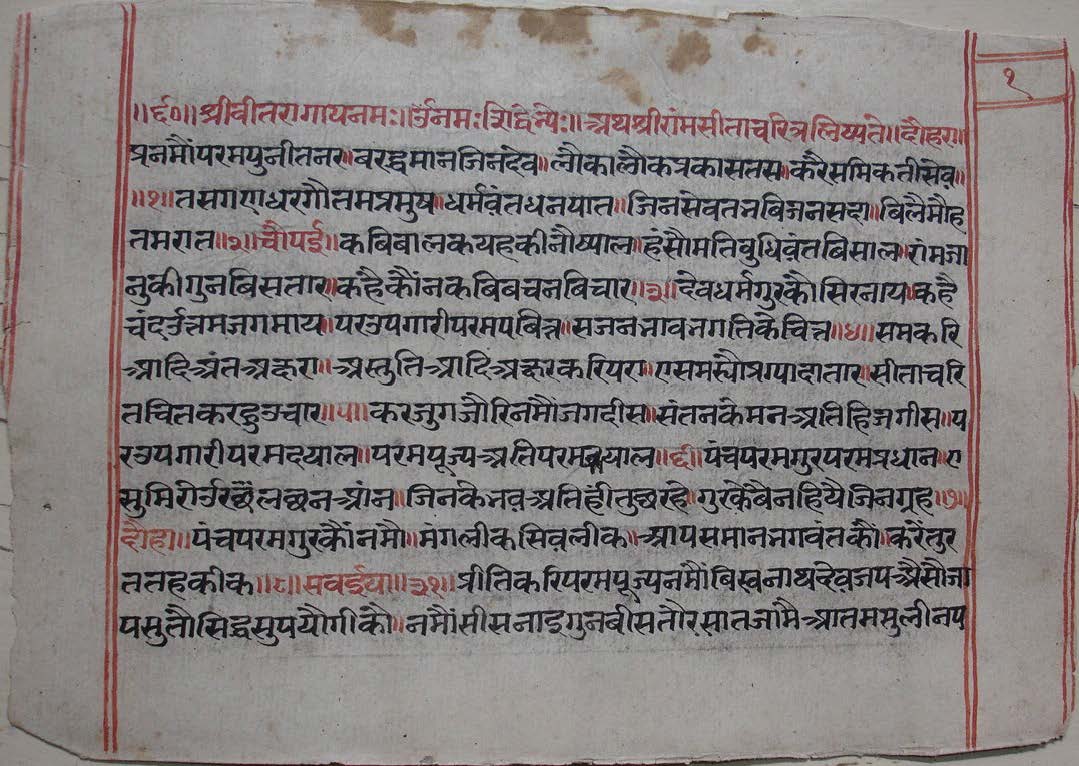 १
॥६०॥ श्रीवीतरागायनमः॥ र्उनमः सिद्वेभ्यः॥ अथश्रीरांमसीताचरित्रलिष्यते॥ दौहरा॥
प्रनमौंपरमपुनीतनर॥ बरद्वमानजिनदेव॥ लौकालौकप्रकासतस॥ करैसमिकतीसेव॥
॥१॥ तसगणधरगौतमप्रमुष॥ धर्मवंतधनपात॥ जिनसेवतभबिजनसदा॥ बिलैमौह
तमरात॥२॥ चौपई॥ कबिबालकयहकीनौष्याल॥ हंसौमतिबुधिवंतबिसाल॥ रांमजा
नुकीगुनबिसतार॥ कहैकौंनकबिबचनबिचार॥३॥ देवधर्मगुरकौसिरनाय॥ कहै
चंदर्उत्तमजगमाय॥ परउपगारीपरमपबित्त॥ सजनभावभगतिकेचित्त॥४॥ समकरि
आदिअंतअक्षरा॥ अस्तुतिआदिअक्षरकरिपरा॥ एसमस्यौप्रग्यादातार॥ सीताचरि
तचितकरहुउचार॥५॥ करजुगजौरिनमौंजगदीस॥ संतनकेमनअतिहिजगीस॥ प
रउपगारीपरमदयाल॥ परमपूज्यअतिपरम याल॥६॥ पंचपरमगुरपरमप्रधान॥ ए
जिनकेनवअतिहींतुछरहे॥ गुरकेबैनहियैजिनग्रह॥७॥
दौहा॥ पंचपरमगुरकौंनमौ॥ मंगलीकसिवलीक॥ आपसमानभगवंतकौं॥ करैंतुर
ततहकीक॥८॥ सवईया॥३१॥ प्रीतिकरिपरमपूज्यनमौंबिस्वनाथदेवजपऔसौजा
पसुतौसिद्वसुपयौगीकौ॥ नमौंसीसनाइगुनबीसतौर सातजामैआतमसुलीनप